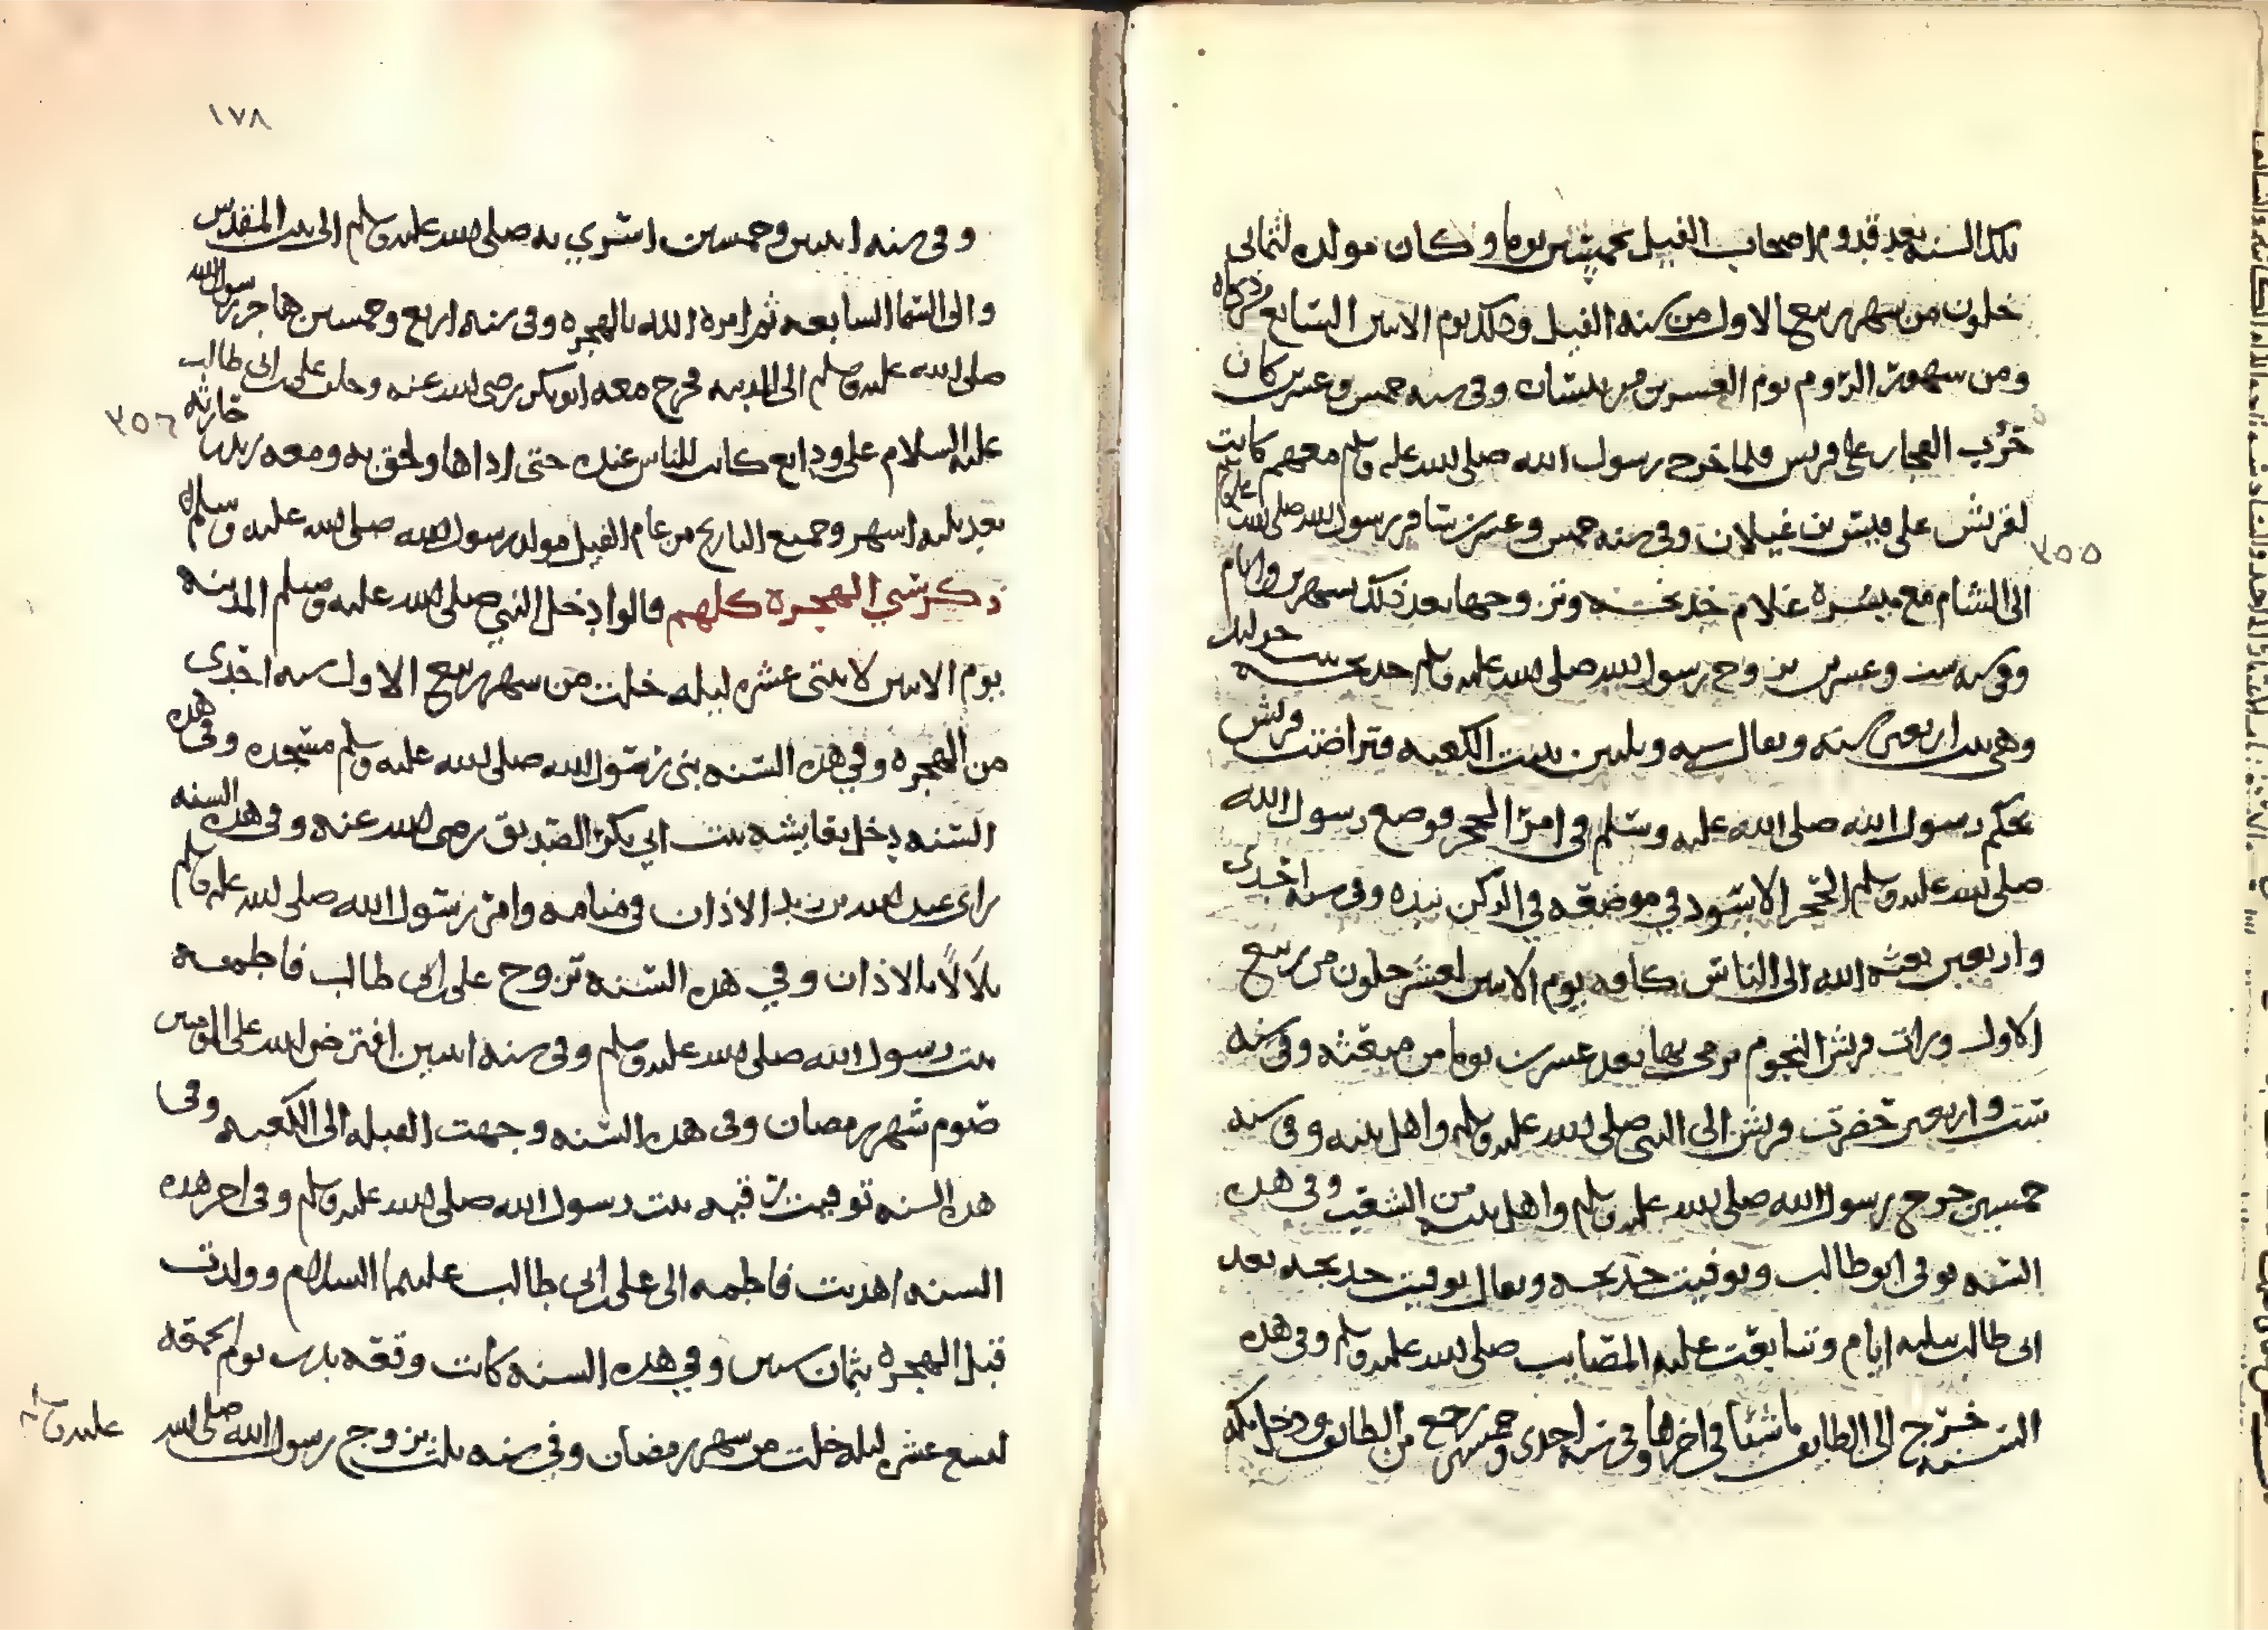 تلك السنه بعد قدوم اصحاب الفيل بخمسين يوما وكان مولده لثماني
خلون من شهر ربيع الاول من سنه الفيل وذلك يوم الاثنين السابع
ومن شهور الروم يوم العشرين من نيسان وفي سنه خمس وعشرين كان
حرب الفجار على قريش فلما خرج رسول الله صلى الله عليه وسلم معهم كانت
لقريش على قيس بن غيلان وفي سنه خمس وعشرين سافر رسول الله صلى الله عليه وسلم
٣٥٥
الى الشام مع ميسره غلام خديجه وتزوجها بعد ذلك بشهرين وايام
وفي سنه ست وعشرين تزوج رسول الله صلى الله عليه وسلم خديجه بنت خويلد
وهي بنت اربعين سنه ويقال سنه وثلثين بنيت الكعبه وتراضت قريش
بحكم رسول الله صلى الله عليه وسلم في امر الحجر فوضع رسول الله
صلى الله عليه وسلم الحجر الاسود في موضعه في الركن بيده وفي سنه احدى
واربعين بعثه الله الى الناس كافه يوم الاثنين لعشر خلون من ربيع
الاول ورات قريش النجوم يرمى بها بعد عشرين يوما من مبعثه وفي سنه
ست واربعين حضرت قريش الى النبي صلى الله عليه وسلم واهل بيته وفي سنه
خمسين خرج رسول الله صلى الله عليه وسلم واهل بيته من الشعب وفي هذه
السنه توفى ابو طالب وتوفيت خديجه ويقال توفيت خديجه بعد
ابى طالب بثلثه ايام وتتابعت عليه المصايب صلى الله عليه وسلم وفي هذه
السنه خرج الى الطايف ماشيا في اخرها وفي سنه احدى وخمسين رجع من الطايف ودخل مكه
١٧٨
وفي سنه اثنين وخمسين اسري به صلى الله عليه وسلم الى بيت المقدس
والى السما السابعه ثم امره الله بالهجره وفي سنه اربع وخمسين هاجر رسول الله
صلى الله عليه وسلم الى المدينه فخرج معه ابو بكر رضي الله عنه وخلف علي بن ابي طالب
٣٥٦
عليه السلام على ودايع كانت للناس عنده حتى اداها ولحق به ومعه زيد بن حارثه
بعد ثلثه اشهر وجميع التاريخ من عام الفيل مولد رسول الله صلى الله عليه وسلم
ذكر سني الهجره كلهم قالوا دخل النبي صلى الله عليه وسلم المدينه
يوم الاثنين لاثنتى عشره ليله خلت من شهر ربيع الاول سنه احدى
من الهجره وفي هذه السنه بنى رسول الله صلى الله عليه وسلم مسجده وفي هذه
السنه دخل بعايشه بنت ابي بكر الصديق رضي الله عنه وفي هذه السنه
راى عبد الله بن زيد الاذان في منامه وامر رسول الله صلى الله عليه وسلم
بلالا بالاذان وفي هذه السنه تزوج علي بن ابي طالب فاطمه
بنت رسول الله صلى الله عليه وسلم وفي سنه اثنين افترض الله على المومنين
صوم شهر رمضان وفي هذه السنه وجهت القبله الى الكعبه وفي
هذه السنه توفيت رقيه بنت رسول الله صلى الله عليه وسلم وفي اخر هذه
السنه اهديت فاطمه الى علي بن ابي طالب عليهما السلام وولدت
قبل الهجره بثمان سنين وفي هذه السنه كانت وقعه بدر يوم الجمعه
لسبع عشر ليله خلت من شهر رمضان وفي سنه ثلث تزوج رسول الله صلى الله
عليه وسلم